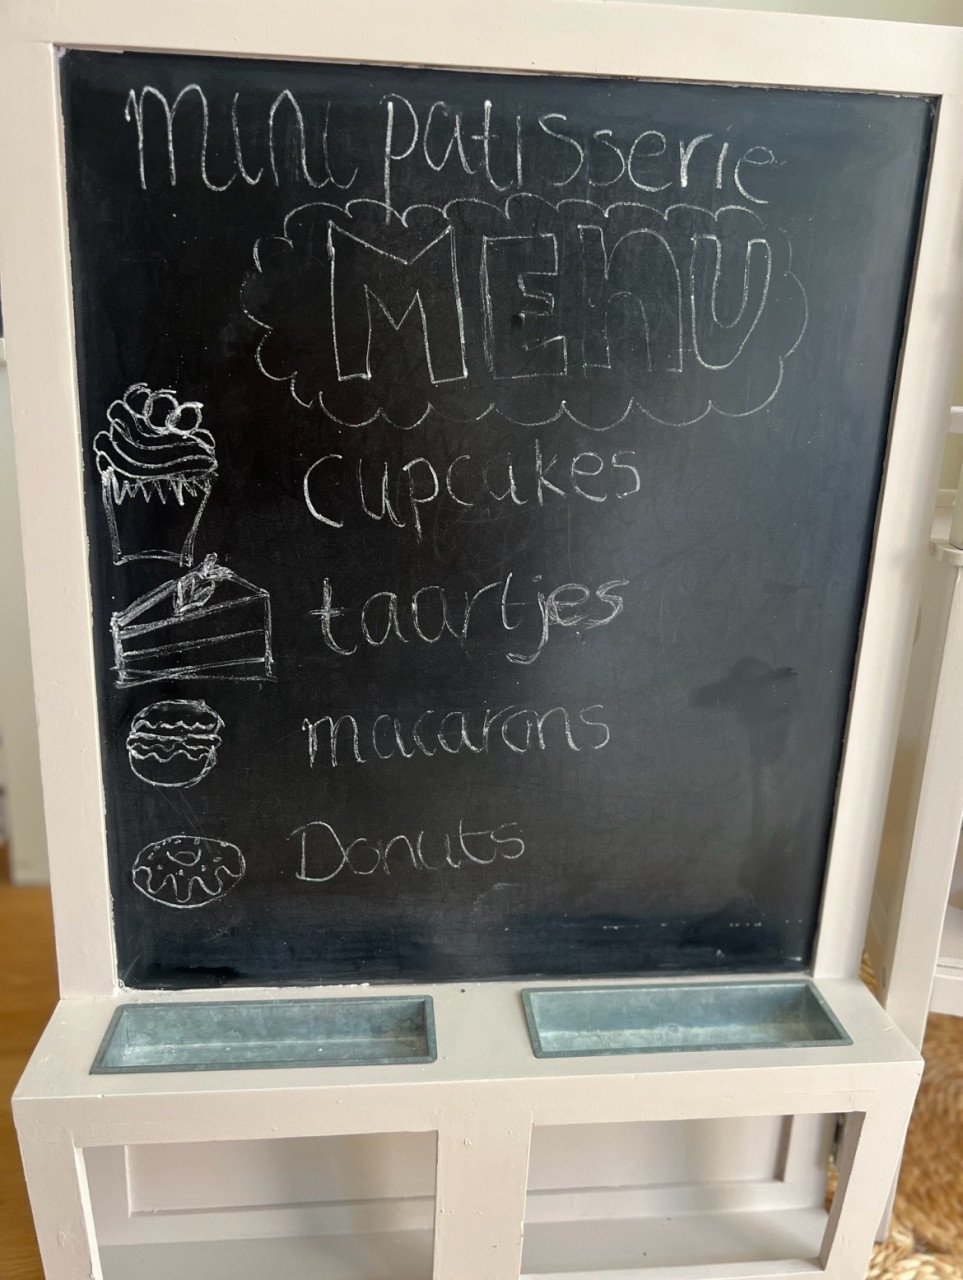 mini patisserie
MEnU
cupcakes
taartjes
macarons
Donuts